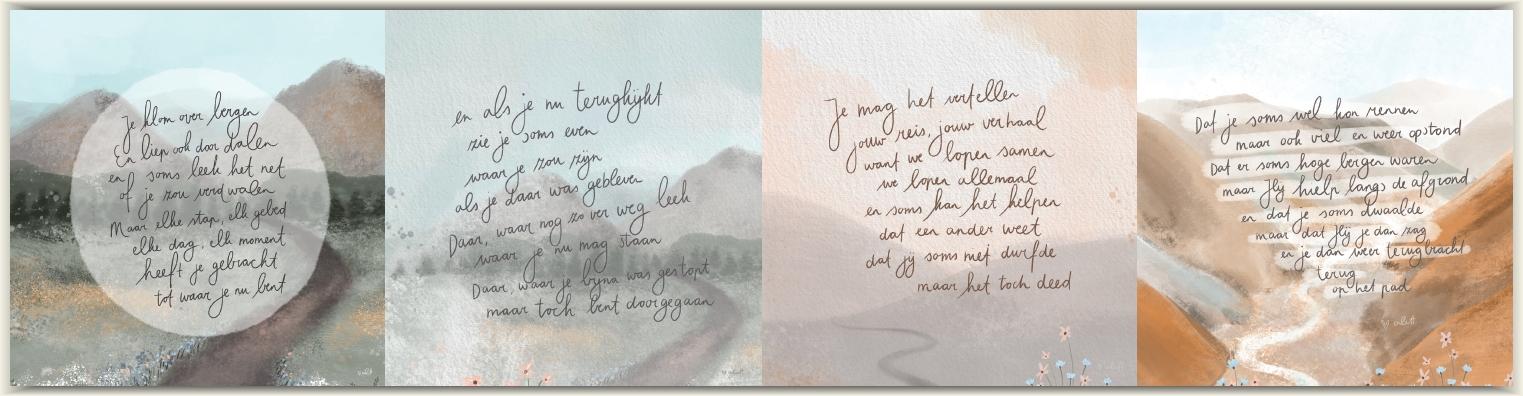 Je klom over bergen
En liep ook door dalen
en soms leek het net
of je zou verdwalen
Maar elke stap, elk gebed
elke dag, elk moment
heeft je gebracht
tot waar je nu bent
en als je nu terugkijkt
zie je soms even
waar je zou zijn
als je daar was gebleven
Daar, waar nog zo ver weg leek
waar je nu mag staan
Daar, waar je bijna was gestopt
maar toch bent doorgegaan
Je mag het vertellen
jouw reis, jouw verhaal
want we lopen samen
we lopen allemaal
en soms kan het helpen
dat een ander weet
dat jij soms niet durfde
maar het toch deed
Dat je soms wel kon rennen
maar ook viel en weer opstond
Dat er soms hoge bergen waren
maar Hij hielp langs de afgrond
en dat je soms dwaalde
maar dat Hij je dan zag
en je dan weer terugbracht
terug
op het pad